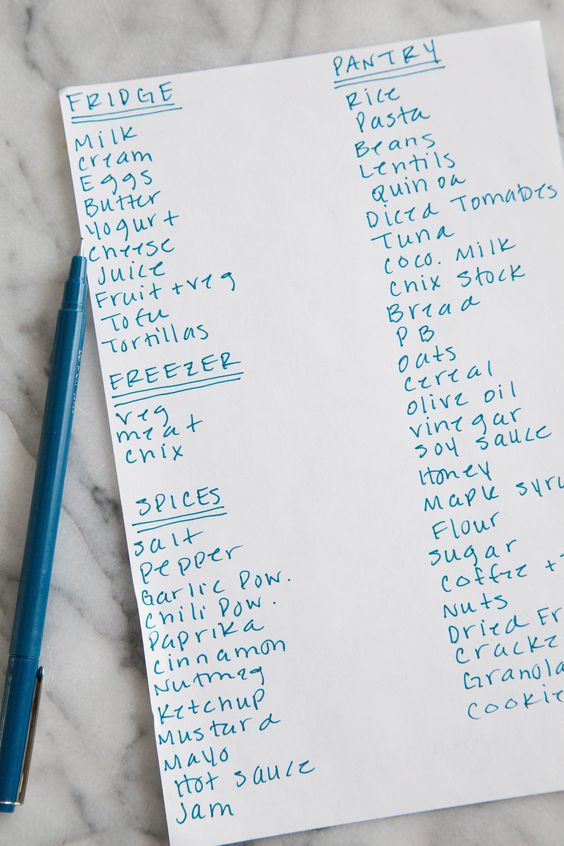 FRIDGE
Milk
Cream
Eggs
Butter
Yogurt
Cheese
Juice
Fruit + veg
Tofu
Tortillas
FREEZER
veg
meat
chix
SPICES
salt
pepper
Garlic Pow.
Chili Pow.
Paprika
Cinnamon
Nutmeg
Ketchup
Mustard
Mayo
Hot sauce
Jam
PANTRY
Rice
Pasta
Beans
Lentils
Quinoa
Diced Tomatoes
Tuna
Coco. Milk
Chix Stock
Bread
PB
Oats
Cereal
Olive oil
Vinegar
Soy sauce
Honey
Maple Syru
Flour
Sugar
Coffee +
Nuts
Dried Fr
Cracke
Granola
Cookie